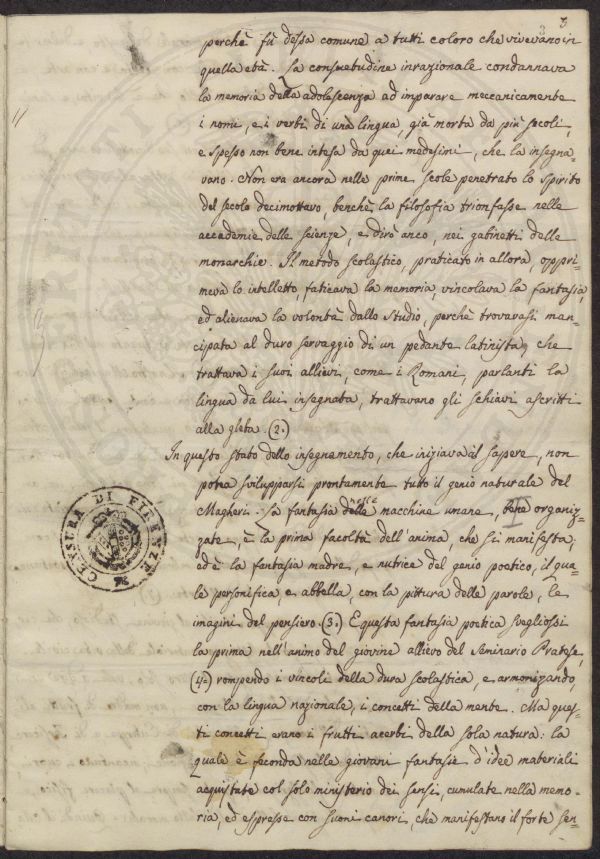 3
perchè fù dessa comune a tutti coloro che vivevano in
quella età. La consuetudine inrazionale condannava
la memoria della adolescenza ad imparare meccanicamente
i nomi, e i verbi di una lingua, già morta da più secoli,
e spesso non bene intesa da quei medesimi, che la insegna=
vano. Non era ancora nelle prime scole penetrato lo spirito
del secolo decimottavo, benchè la filosofia trionfasse nelle
accademie delle scienze, e dirò anco, nei gabinetti delle
monarchie. Il metodo scolastico, praticato in allora, oppri=
meva lo intelletto, faticava la memoria, vincolava la fantasia,
ed alienava la volontà dallo studio, perchè trovavasi man=
cipata al duro servaggio di un pedante latinista, che
trattava i suoi allievi, come i Romani, parlanti la
lingua da lui insegnata, trattavano gli schiavi ascritti
alla gleba. (2.)
In questo stato dello insegnamento, che iniziava il sapere, non
potea svilupparsi prontamente tutto il genio naturale del
Magheri. La fantasia delle nelle macchine umane, bene organiz=
zate, è la prima facoltà dell'anima, che si manifesta;
ed è la fantasia madre, e nutrice del genio poetico, il qua=
le personifica, e abbella, con la pittura delle parole, le
imagini del pensiero. (3.) E questa fantasia poetica svegliossi
la prima nell'animo del giovine allievo del Seminario Pratese,
(4.) rompendo i vincoli della dura scolastica, e armonizando,
con la lingua nazionale, i concetti della mente. Ma ques=
ti concetti erano i frutti acerbi della sola natura: la
quale è feconda nelle giovani fantasie d'idee materiali
acquistate col solo ministerio dei sensi, cumulate nella memo=
ria, ed espresse con suoni canori, che manifestano il forte sen=
CENSURA DI FIRENZE